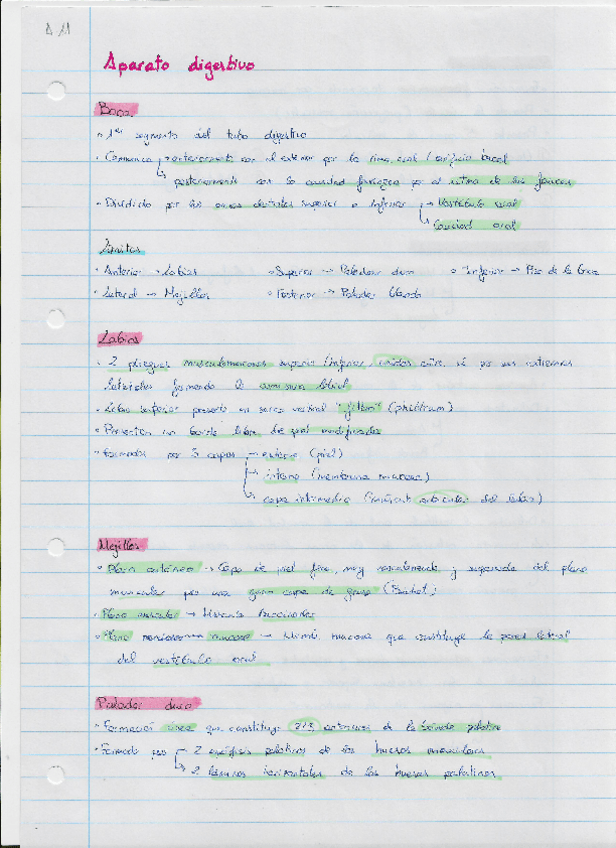 Aparato digestivo
Boca
• 1er segmento del tubo digestivo
• Comunica anteriormente con el exterior por la rima oral / orificio bucal
posteriormente con la cavidad faríngea por el istmo de las fauces
• Dividida por los arcos dentales superior e inferior → Vestíbulo oral
Cavidad oral
Límites
• Anterior → Labios • Superior → Paladar duro • Inferior → Piso de la boca
• Lateral → Mejillas • Posterior → Paladar blando
Labios
• 2 pliegues musculomucosos superior / inferior, unidos entre sí por sus extremos
laterales formando la comisura labial
• Labio presenta un surco vertical "filtrum" (philtrum)
• Presentan un borde libre de piel modificada
• Formados por 3 capas → externa (piel)
→ interna (membrana mucosa)
→ capa intermedia (músculo orbicular del labio)
Mejillas
• Plano cutáneo → Capa de piel fina, muy vascularizada y separada del plano
muscular por una gran capa de grasa (Bichat)
• Plano muscular → Músculo Buccinador
• Plano mucoso → mucosa que constituye la pared lateral
del vestíbulo oral
Paladar duro
• Formación ósea que constituye 2/3 anteriores de la bóveda palatina
• Formado por 2 apófisis palatinas de los huesos maxilares
2 láminas horizontales de los huesos palatinos